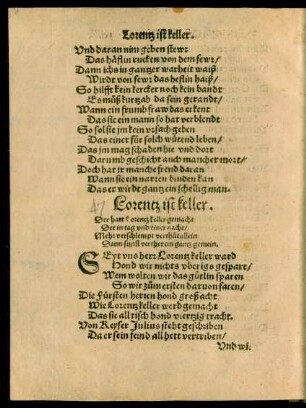 Lorentz ist keller.
Vnd daran nim geben stewr
Das häflin rucken von dem fewr/
Dann ichs in gantzer warheit waiß
Wirdt von fewr das heflin haiß/
So hilfft kein kercker noch kein bandt
Es můß kurtzab da sein gerandt/
Wann ein frumb fraw das erkent
Das sie ein mann so hat verblendt
So sol sie jm kein vrsach geben
Das einer für solch wůtend leben/
Das jm mag schaden hie vnd dort
Darumb geschicht auch mancher mort/
Doch hat jr manche freud daran
Wann sie ein narren binden kan
Das er wirdt gantz ein schellig man.
Lorentz ist keller.
47
Der hatt Lorentz keller gemacht
Der in tag vnd nacht
Mehr verschlempt verthůt allein
Dann sunst verthet ein gantz gemein.
SEyt vns herr Lorentz keller ward
Hond wir nichts vberigs gespart/
Wem wolten wir das gůtlin sparen
So wir zům ersten daruon faren/
Die Fürsten herren hond groß acht
Wie Lorentz keller werd gemacht
Das sie all tisch hond viertzig tracht.
Von Keyser Julius steht geschriben
Da er sein feind all hett vertriben/
Vnd